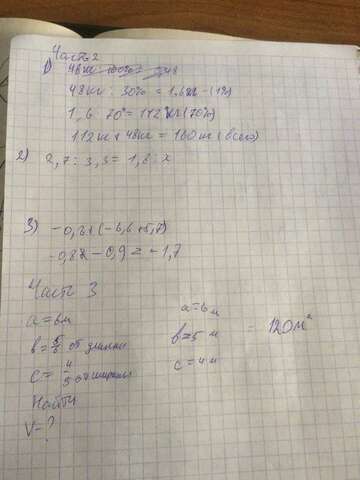 Часть 2
1) 48кг : 100% = 0,48
48кг : 30% = 1.6кг - (1%)
1,6 · 70 = 112кг (70%)
112кг + 48кг = 160кг (всего)
2) 2,7 : 3,3 = 1,8 : x
3) -0,8+(-6,6+5,7)
-0,8 - 0,9 = -1,7
Часть 3
a=6м
b=5/6 от длины
c= 4/5 от ширины
Найти
V=?
a=6м
b=5 м
c=4м
= 120м